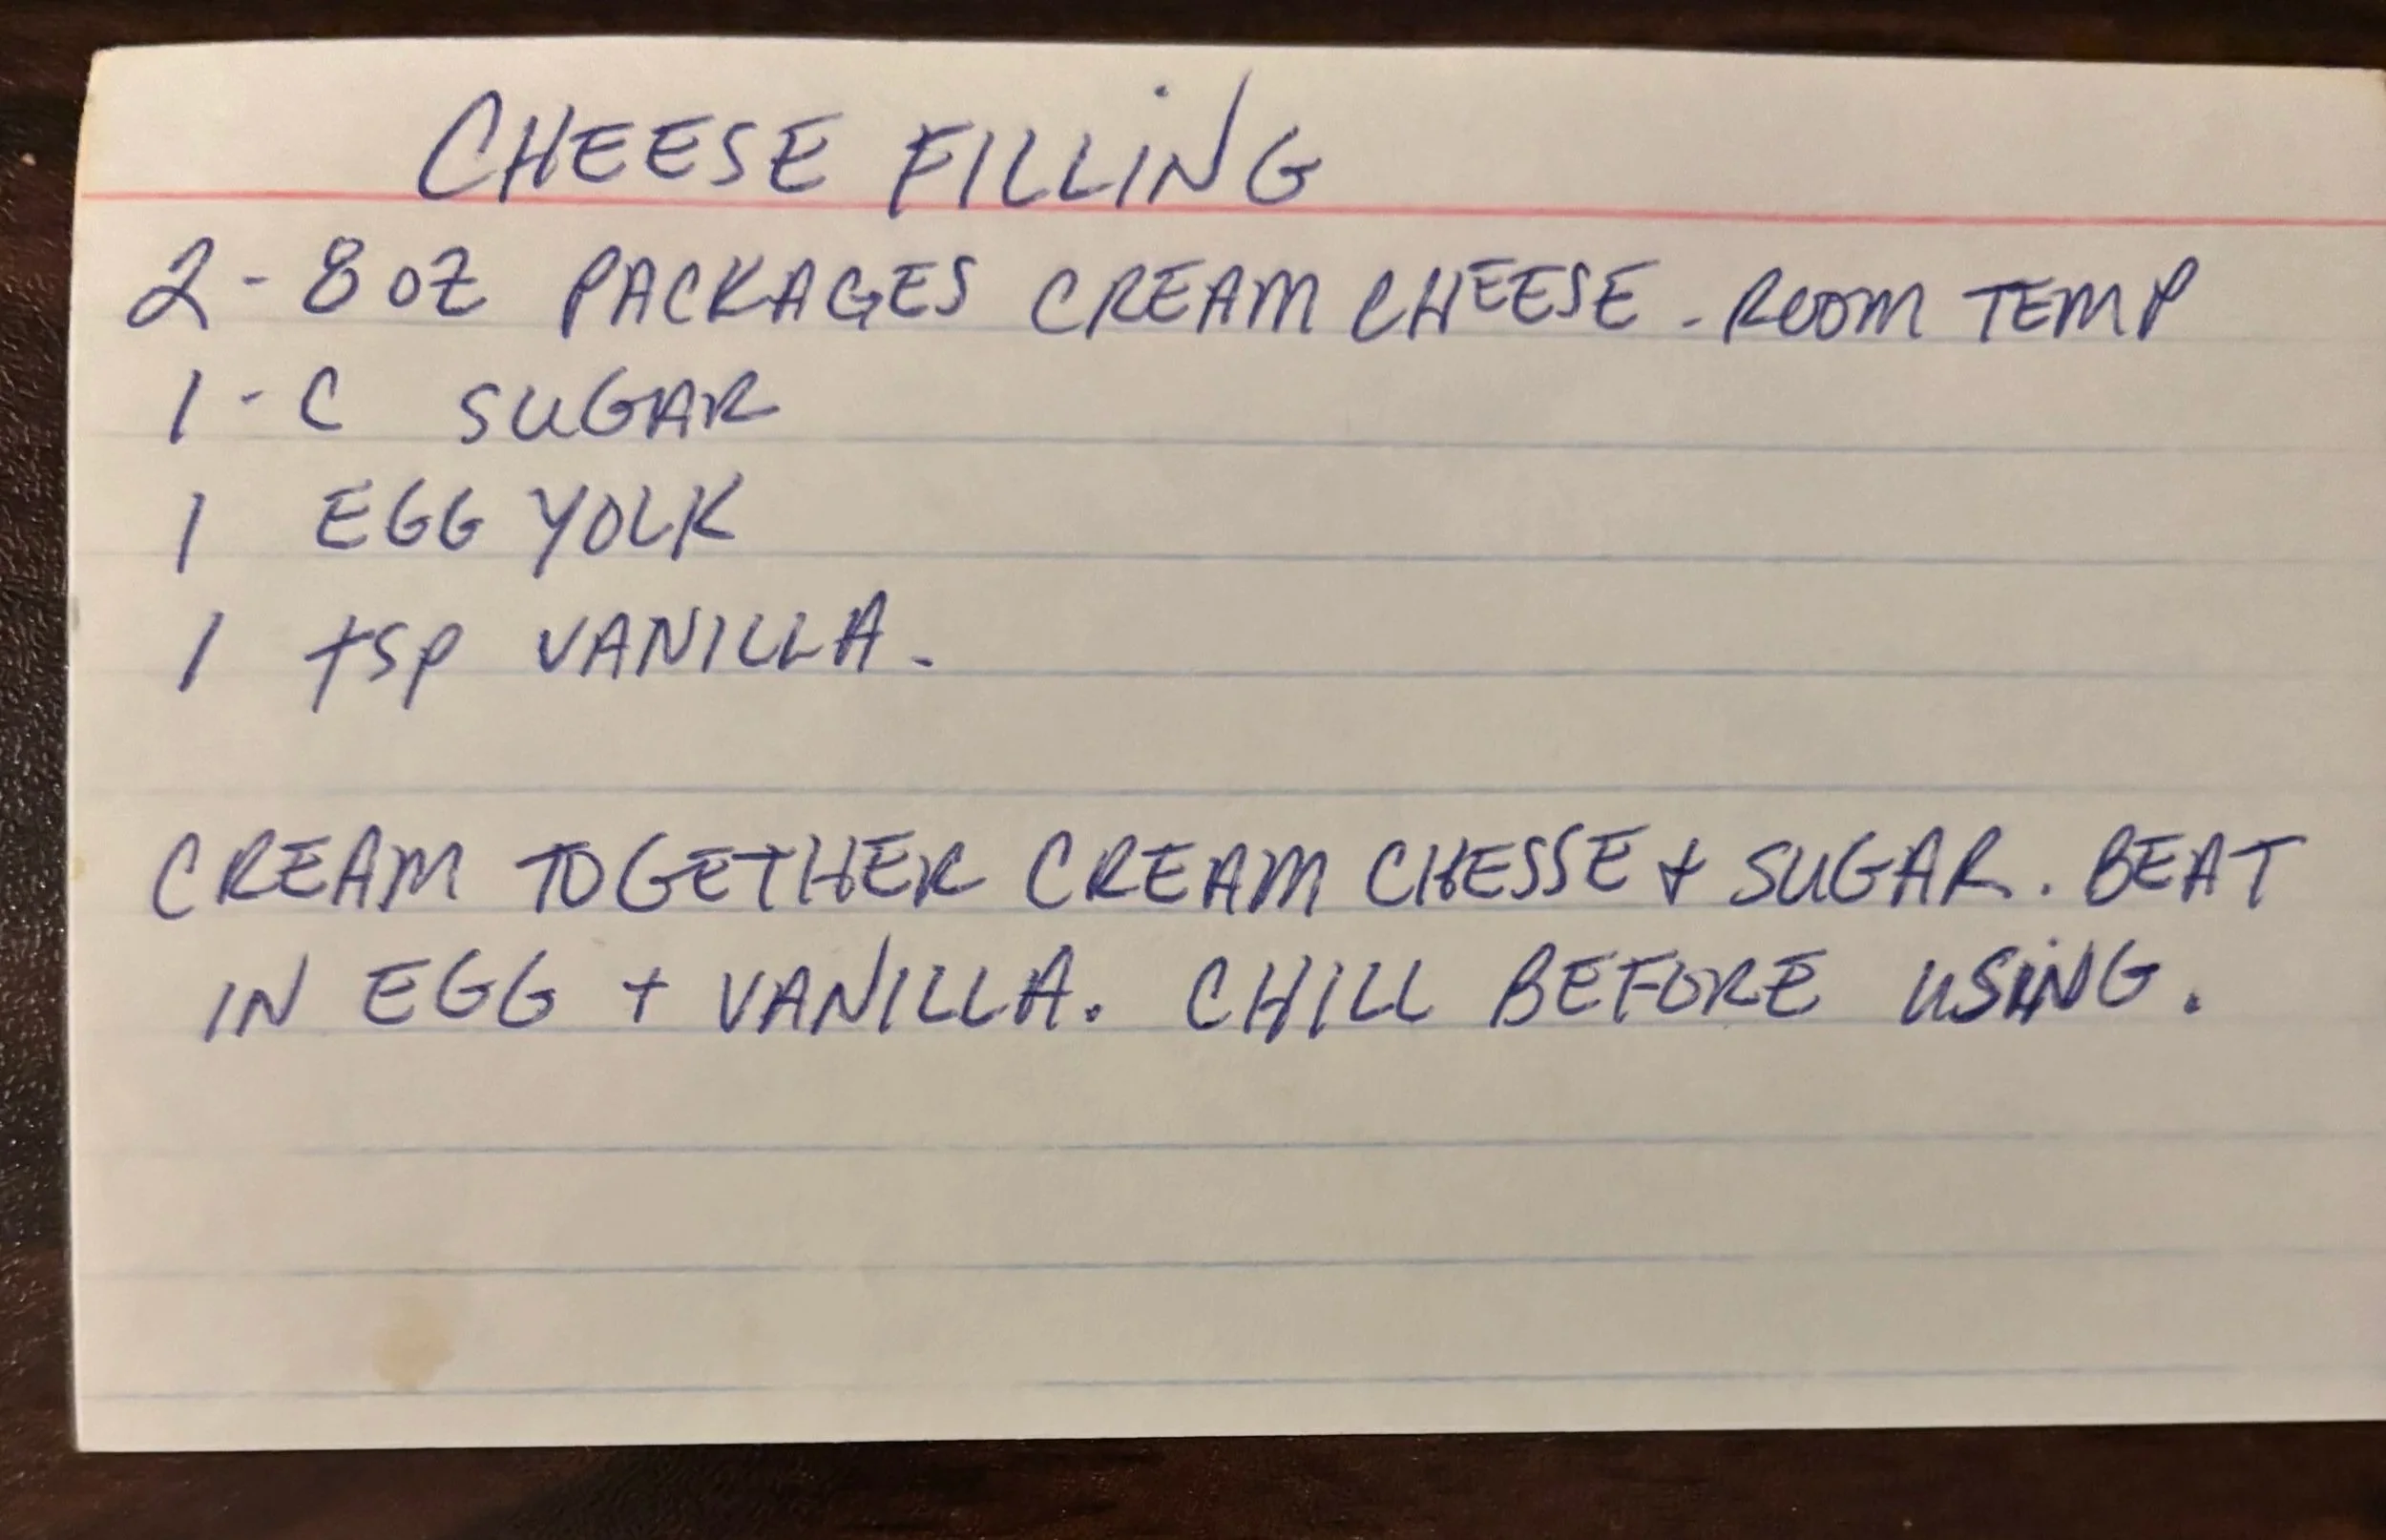 CHEESE FILLING
2-8 OZ PACKAGES CREAM CHEESE - ROOM TEMP
1-C SUGAR
1 EGG YOLK
1 tsp VANILLA.
CREAM TOGETHER CREAM CHESSE + SUGAR. BEAT
IN EGG + VANILLA. CHILL BEFORE USING.